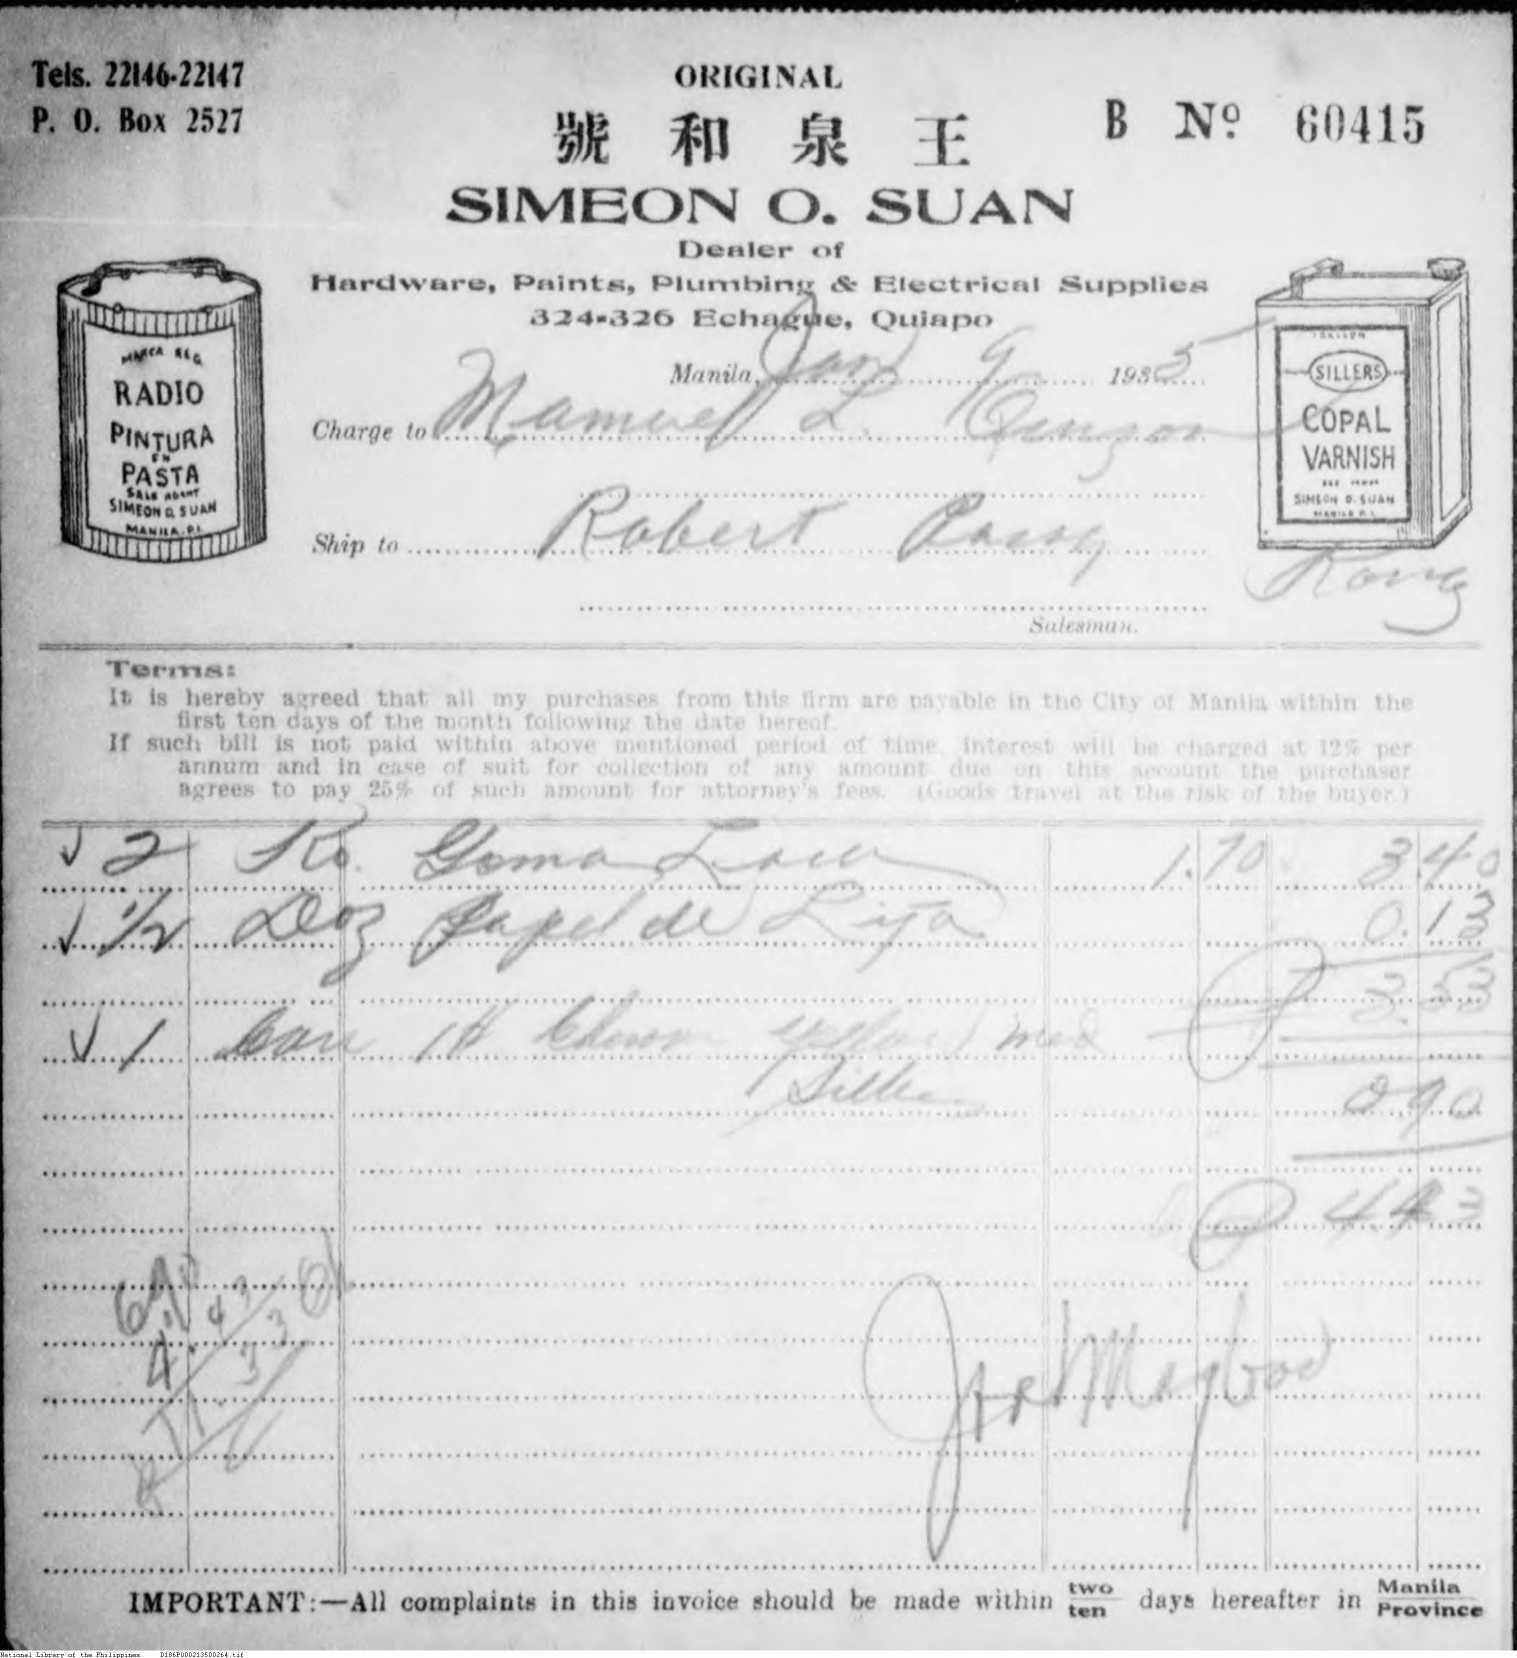 Tels. 22146-22147
P. O. Box 2527
ORIGINAL
B Nº 60415
號和泉王
SIMEON O. SUAN
Dealer of
Hardware, Paints, Plumbing & Electrical Supplies
324-326 Echague, Quiapo
MARCA REG
RADIO
PINTURA
EN
PASTA
SALE AGENT
SIMEON O. SUAN
MANILA. P.I.
SILLERS
COPAL
VARNISH
SIMEON O. SUAN
MANILA P. I.
Manila, Jan 9 1935
Charge to Manuel L.
Ship to Robert
Salesman.
Terms:
It is hereby agreed that all my purchases from this firm are payable in the City of Manila within the
first ten days of the month following the date hereof.
If such bill is not paid within above mentioned period of time, interest will be charged at 12% per
annum and in case of suit for collection of any amount due on this account the purchaser
agrees to pay 25% of such amount for attorney's fees. (Goods travel at the risk of the buyer.)
2 Ko. Goma Laca 1.70 3.40
1/2 Doz Papel de Lija 0.13
3.53
1 Yellow Med
0.90
4.43
IMPORTANT:—All complaints in this invoice should be made within two ten days hereafter in Manila Province
National Library of the Philippines D186P000213500264.tif